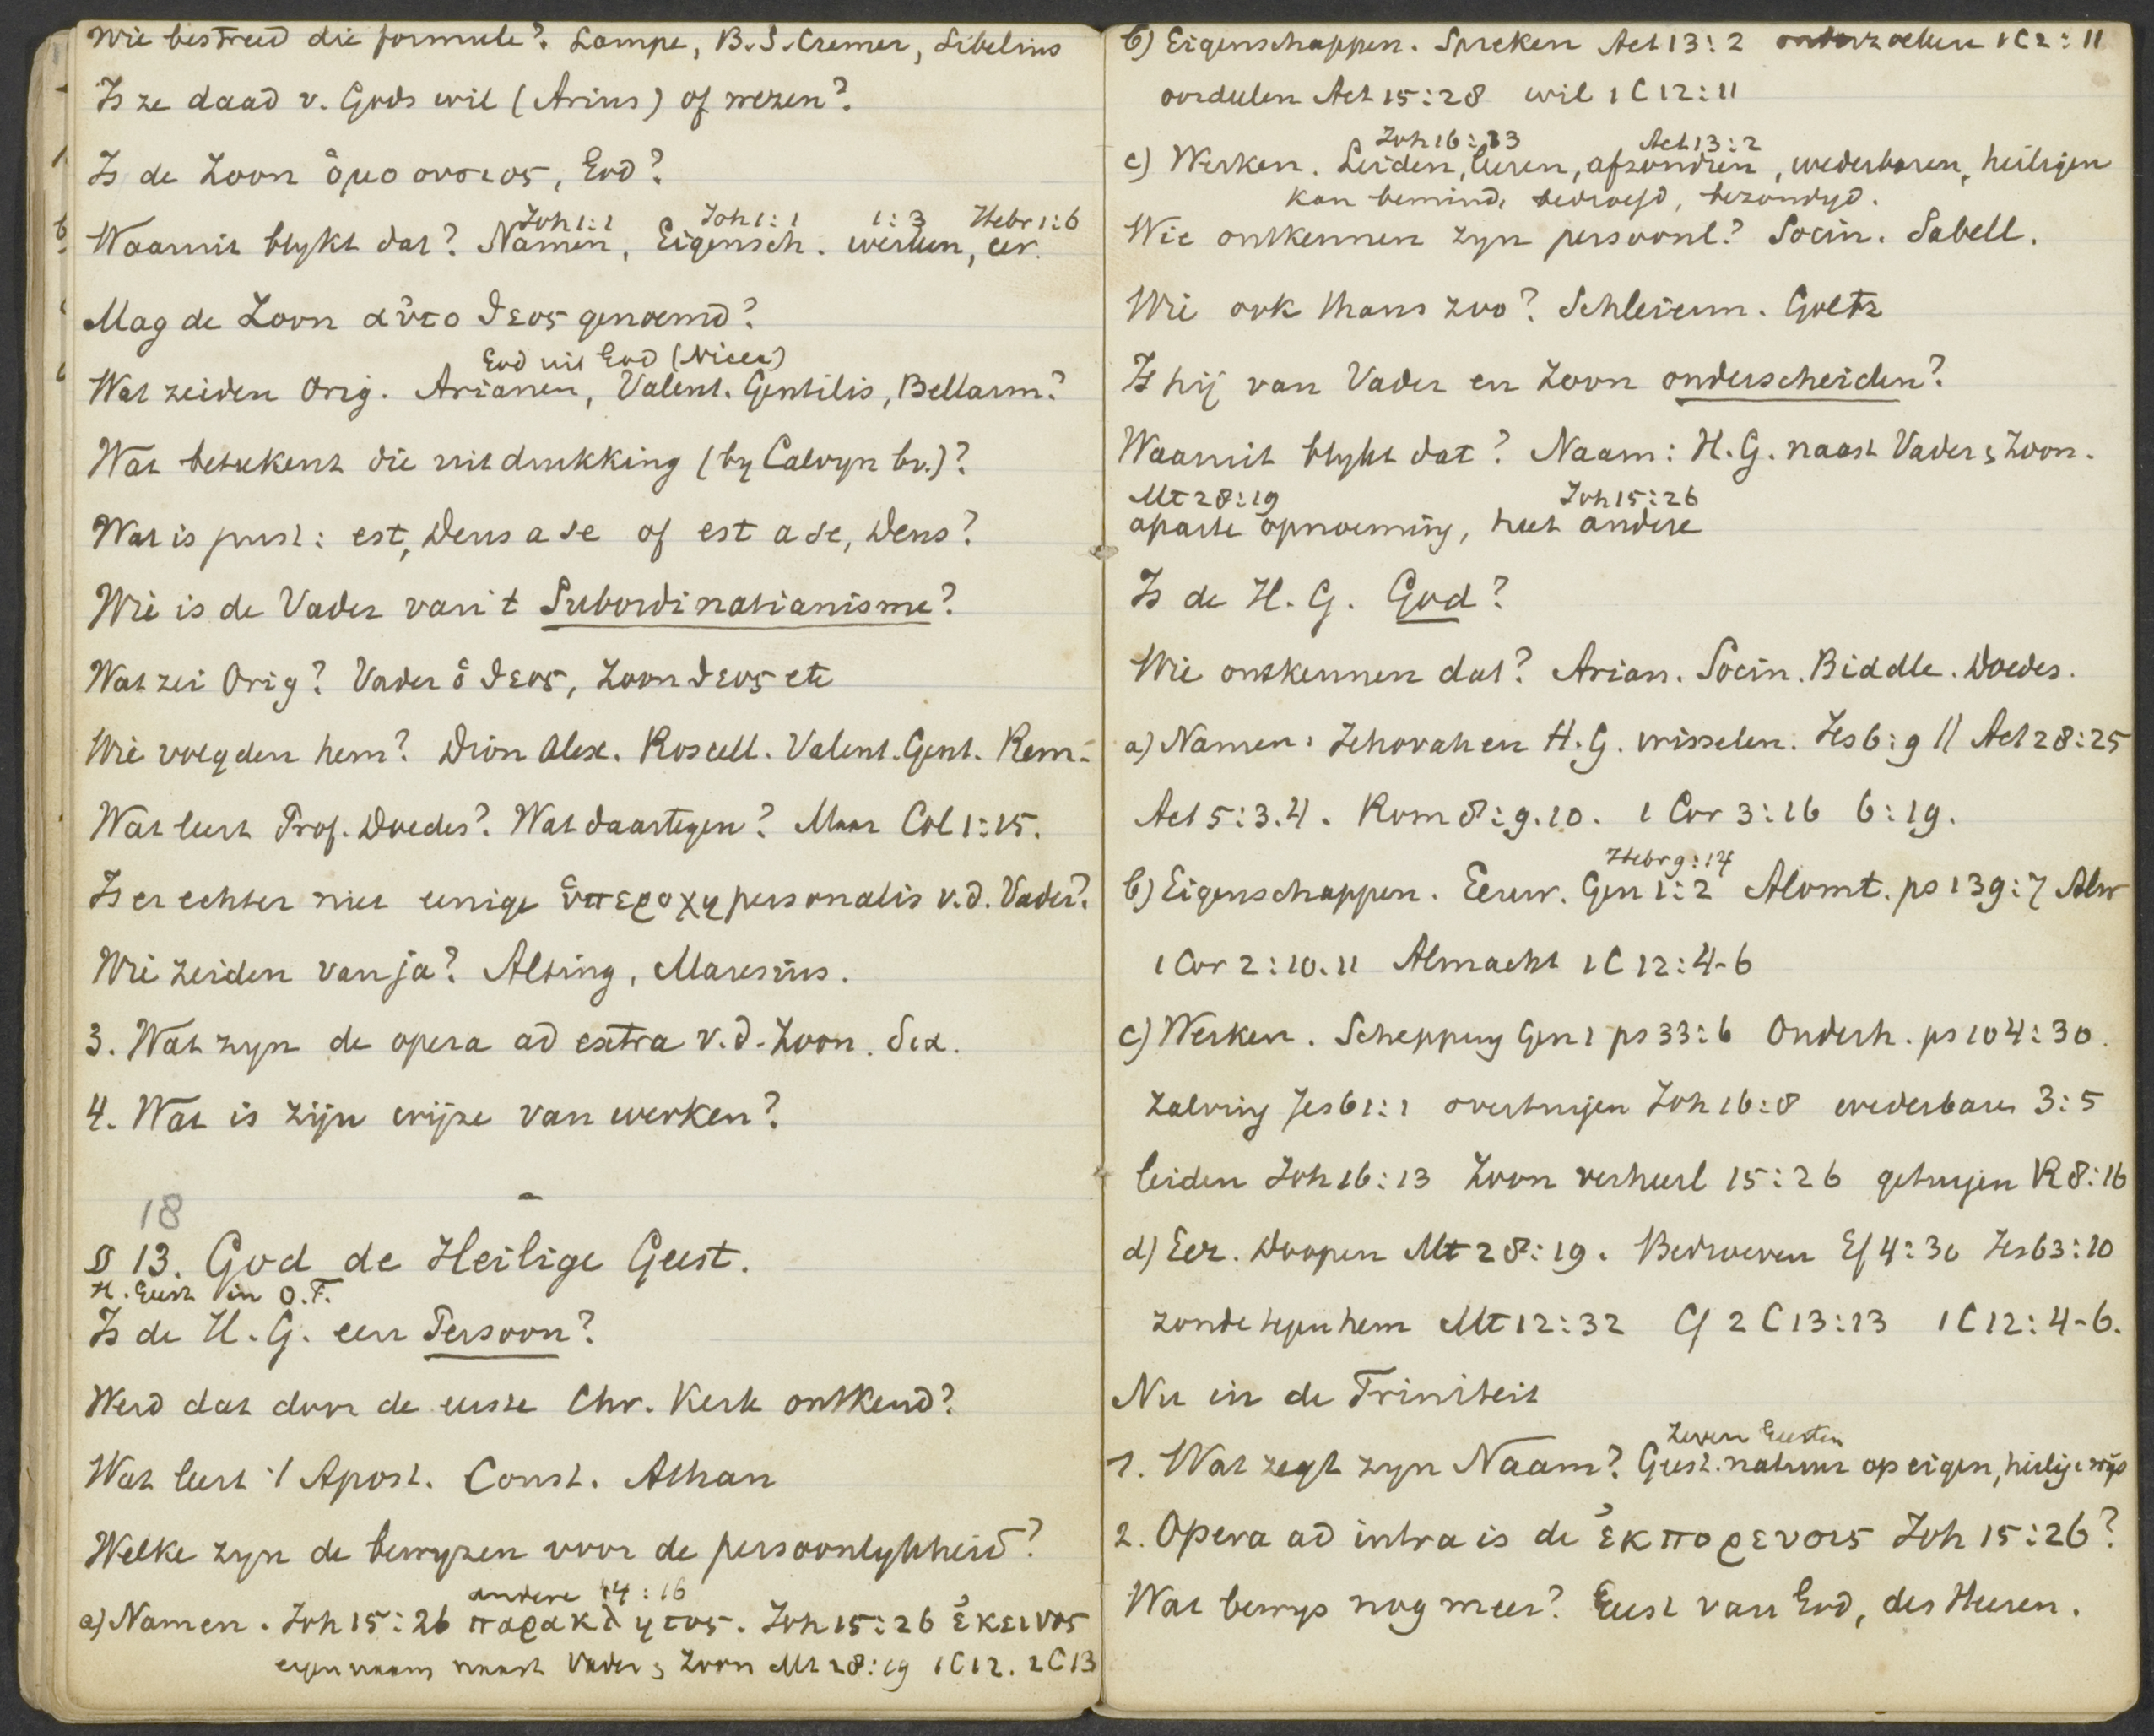 Wie bestreed die formule? Lampe, B.S. Cremer, Sibelius
Is ze daad v. Gods wil (Arius) of wezen?
Is de Zoon ὁμοουσιος, God?
Joh 1:1 Joh 1:1 1:3 Hebr 1:6
Waaruit blykt dat? Namen, Eigensch. werken, eer.
Mag de Zoon αὐτοθεος genoemd?
God uit God (Nicea)
Wat zeiden Orig. Arianen, Valent. Gentilis, Bellarm?
Wat betekent die uitdrukking (by Calvyn bv.)?
Wat is juist: est, Deus a se of est a se, Deus?
Wie is de Vader van 't Subordinatianisme?
Wat zei Orig? Vader ὁ θεος, Zoon θεος etc
Wie volgden hem? Dion Alex. Roscell. Valent. Gent. Rem.
Wat leert Prof. Doedes? Wat daartegen? Maar Col 1:15.
Is er echter niet eenige ὑπεροχη personalis v.d. Vader?
Wie zeiden van ja? Alting, Maresius.
3. Wat zyn de opera ad extra v.d. Zoon. Sex.
4. Wat is zijn wijze van werken?
18
§ 13. God de Heilige Geest.
H. Geest in O.T.
Is de H.G. een Persoon?
Werd dat door de eerste Chr. Kerk ontkend?
Wat leert 't Apost. Const. Athan
Welke zyn de bewyzen voor de persoonlykheid?
andere 14:16
a) Namen. Joh 15:26 παρακλητος. Joh 15:26 ἐκεινος
eigennaam naast Vader & Zoon Mt 28:19 1C12. 2C13
b) Eigenschappen. Spreken Act 13:2 onderzoeken 1C2:11
oordeelen Act 15:28 wil 1C12:11
Joh 16:13 Act 13:2
c) Werken. Leiden, leeren, afzondren, wederbaren, heiligen
kan bemind, bedroefd, bezondigd.
Wie ontkennen zyn persoonl? Socin. Sabell.
Wie ook thans zoo? Schleierm. Goltz
Is hij van Vader en Zoon onderscheiden?
Waaruit blykt dat? Naam: H.G. naast Vader & Zoon.
Mt 28:19 Joh 15:26
aparte opnoeming, heet andere
Is de H.G. God?
Wie ontkennen dat? Arian. Socin. Biddle. Doedes.
a) Namen: Jehovah en H.G. wisselen. Jes 6:9 || Act 28:25
Act 5:3.4. Rom 8:9.10. 1 Cor 3:16 6:19.
Hebr 9:14
b) Eigenschappen. Eeuw. Gen 1:2 Alomt. ps 139:7 Alw
1 Cor 2:10.11 Almacht 1C12:4-6
c) Werken. Schepping Gen 1 ps 33:6 Onderh. ps 104:30.
zalving Jes 61:1 overtuigen Joh 16:8 wederbaren 3:5
leiden Joh 16:13 Zoon verheerl 15:26 getuigen R 8:16
d) Eer. Doopen Mt 28:19. Bedroeven Ef 4:30 Jes 63:10
zonde tegen hem Mt 12:32 Cf 2C13:13 1C12:4-6.
Nu in de Triniteit
Zeven Geesten
1. Wat zegt zyn Naam? Geest. natuur op eigen, heilige wijs
2. Opera ad intra is de ἐκπορευσις Joh 15:26?
Wat bewys nog meer? Geest van God, des Heeren.